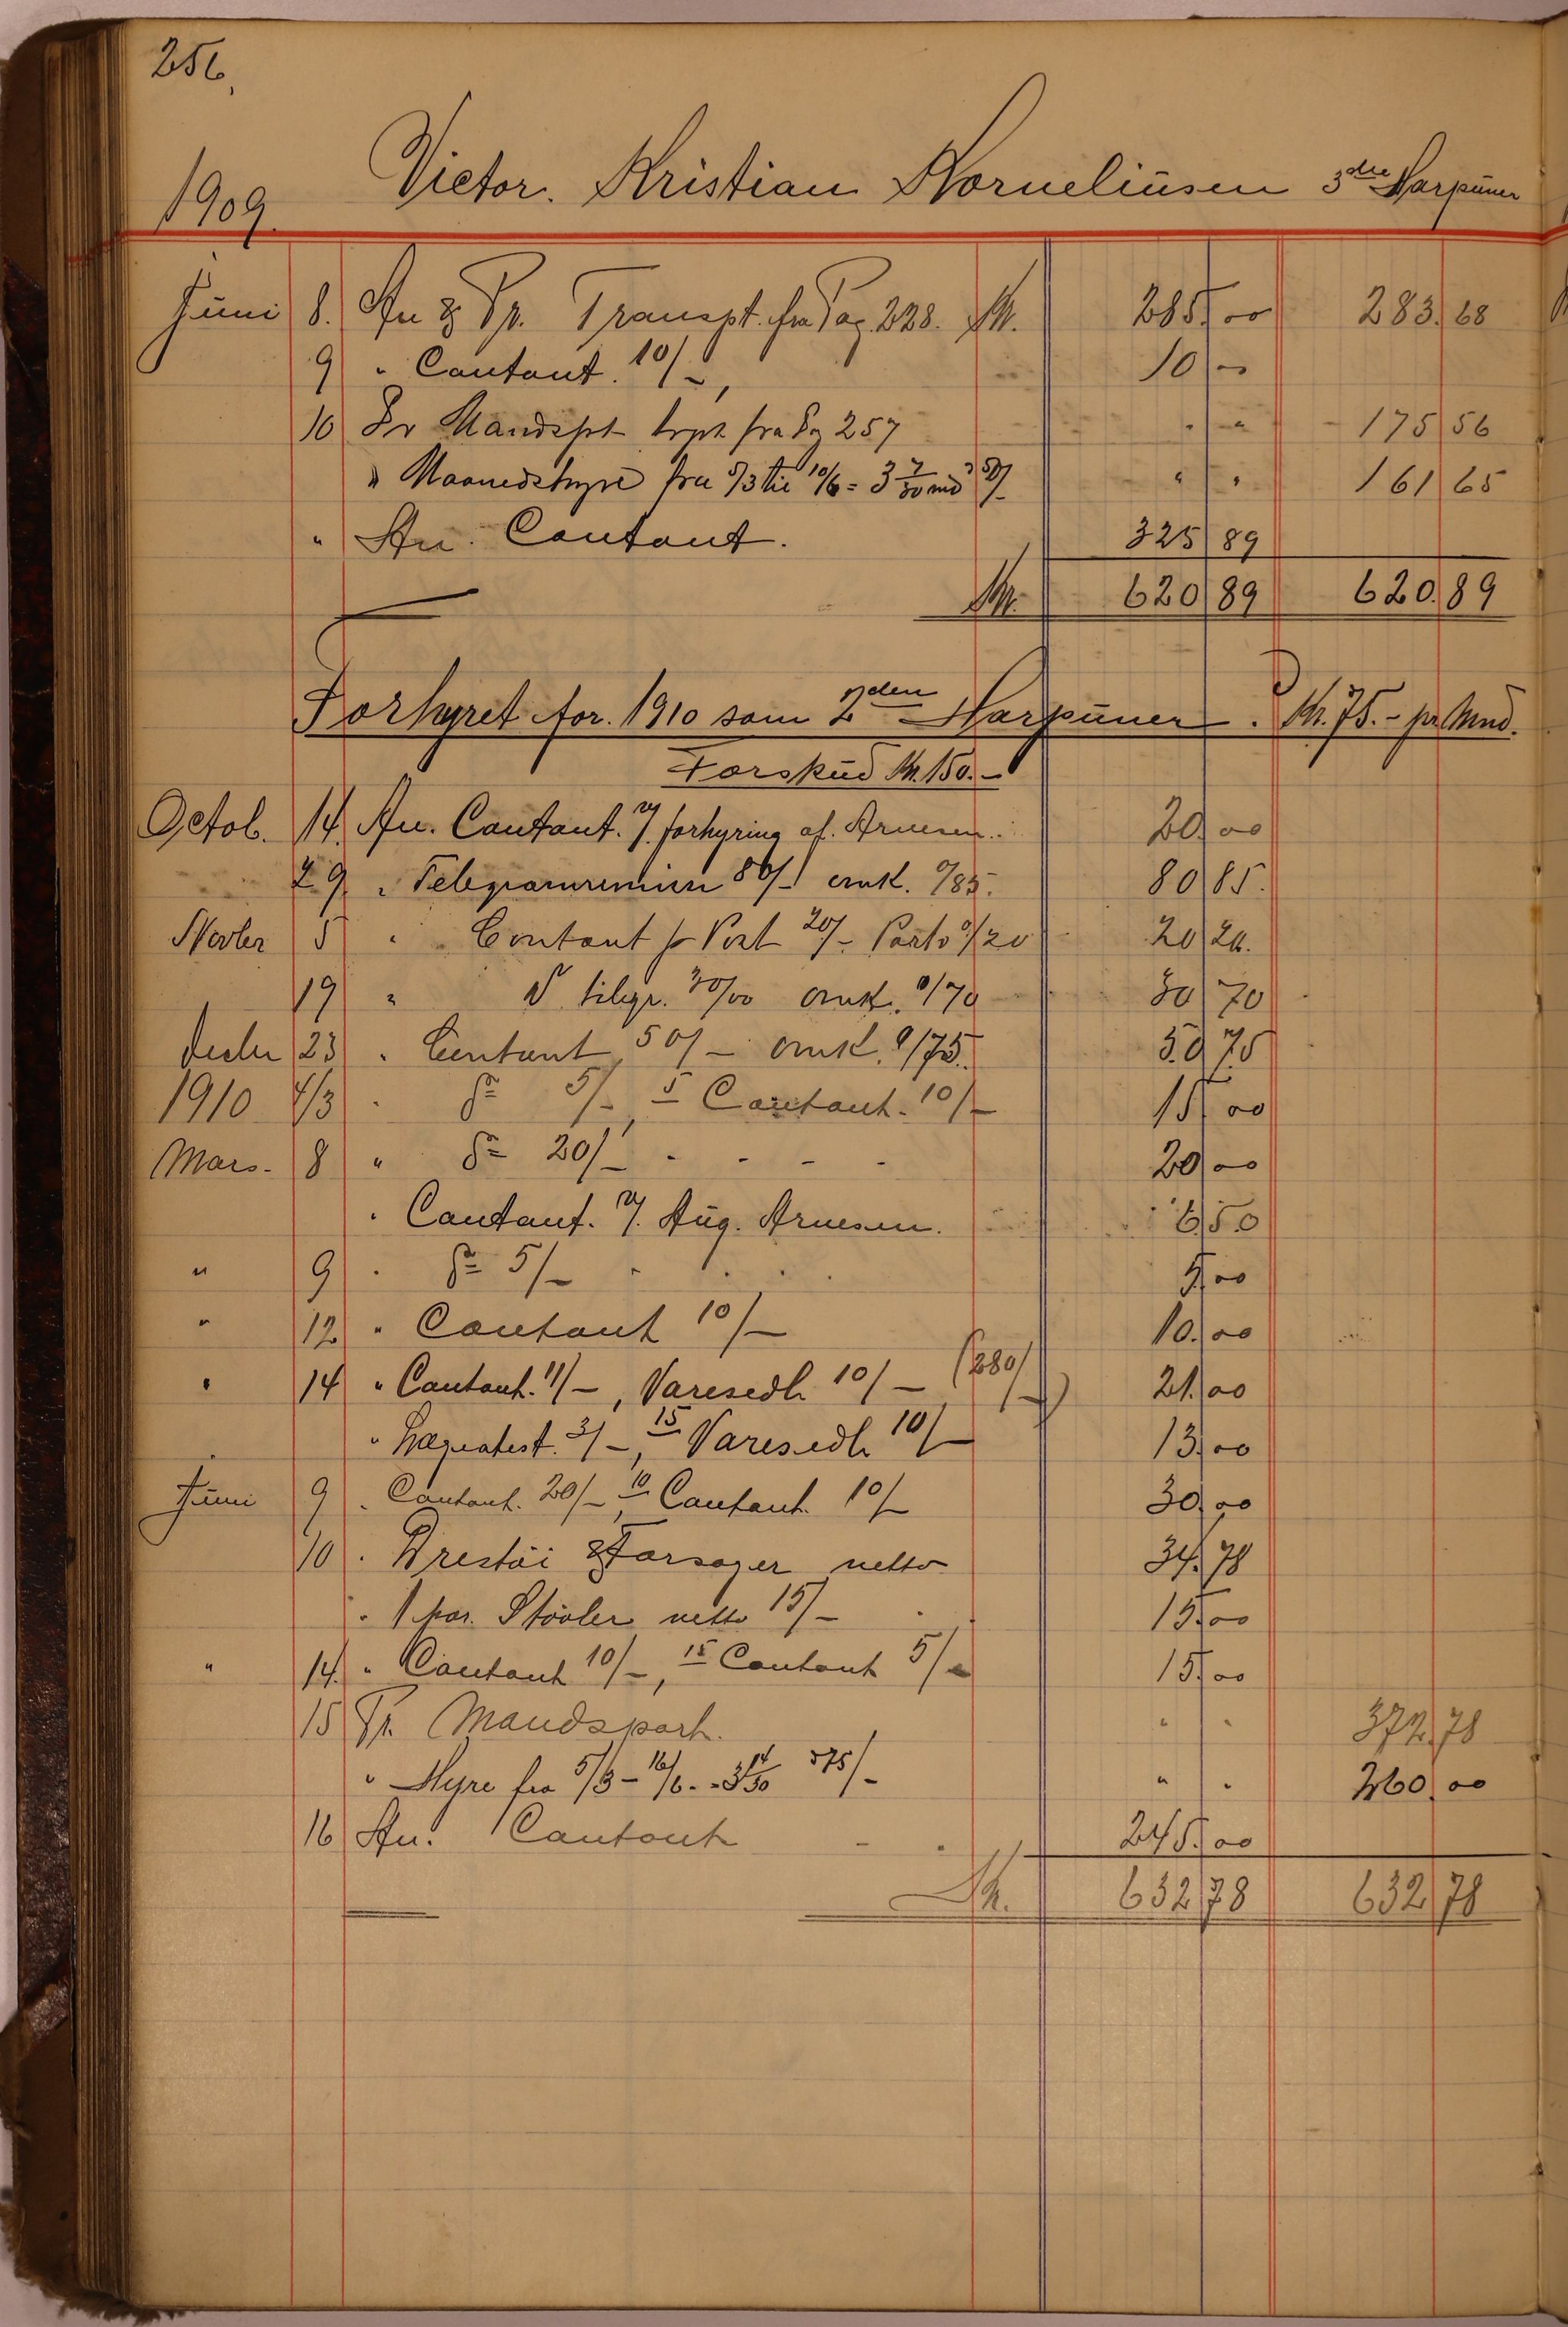 256,
1909. Victor. Kristian Korneliusen 3die Harpuner
Juni 8. An & Pr. Transpt. fra Pag. 228. Kr. 285.00 283.68
9 " Contant. 10/-, 10 -
10 Pr Mandspt trpt fra Pg 257 " " 175 56
" Maanedshyre fra 5/3 til 10/6 = 3 7/30 md 50/- " " 161 65
" An. Contant. 325 89
Kr. 620 89 620.89
Forhyret for. 1910 som 2den Harpuner. Kr. 75.- pr Mnd.
Forskud Kr. 150.-
Octob. 14. An. Contant. v/ forhyring af. Arnesen. 20.00
29 " 80/- omk. 0/85. 80 85.
Novber 5 " Contant pr Post 20/- Porto 0/20 20 20.
19 " Do telegr. 30/00 omk. 0/70 30 70
Decbr 23 " Contant 50/- omk. 0/75. 50 75
1910 4/3 " Do 5/-, 5 Contant. 10/- 15.00
Mars. 8 " Do 20/- " - - - 20.00
" Contant. v/. Aug. Arnesen. 6.50
" 9 " Do 5/- " . . . 5.00
" 12 " Contant 10/- 10.00
" 14 " Contant. 11/-, Varesedl. 10/- (280/-) 21.00
" Lægeatest. 3/-, 15 Varesedl. 10/- 13.00
Juni 9 " Contant. 20/-, 10 Contant. 10/- 30.00
10 " Drestöi & Farsager netto 34.78
" 1 par. Stövler netto 15/- 15.00
" 14. " Contant 10/-, 15 Contant 5/- 15.00
15 Pr. Mandspart. " " 372.78
" Hyre fra 5/3 - 16/6 - = 3 14/30 á 75/- " " 260.00
16 An. Contant - . 245.00
Kr. 632 78 632 78